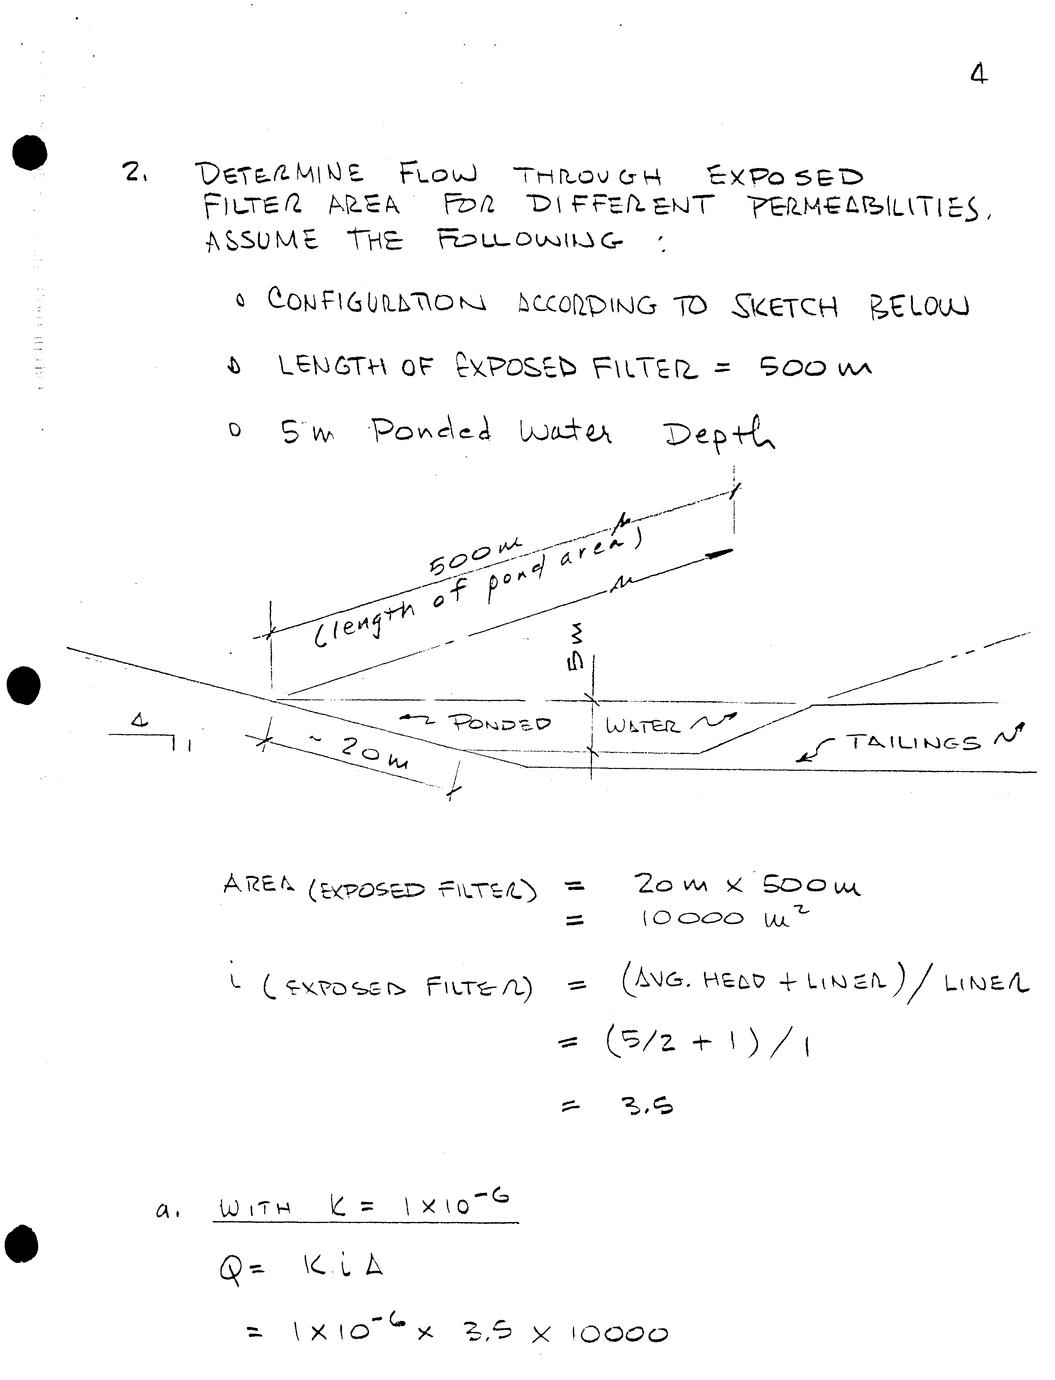 4
2. DETERMINE FLOW THROUGH EXPOSED
FILTER AREA FOR DIFFERENT PERMEABILITIES.
ASSUME THE FOLLOWING :
o CONFIGURATION ACCORDING TO SKETCH BELOW
o LENGTH OF EXPOSED FILTER = 500 m
o 5 m Ponded Water Depth
500 m
(length of pond area)
5 m
PONDED WATER
4
1
~ 20 m
TAILINGS
AREA (EXPOSED FILTER) = 20 m x 500 m
= 10000 m²
i (EXPOSED FILTER) = (AVG. HEAD + LINER) / LINER
= (5/2 + 1) / 1
= 3.5
a. WITH K = 1 X 10⁻⁶
Q = K i A
= 1 X 10⁻⁶ x 3.5 x 10000